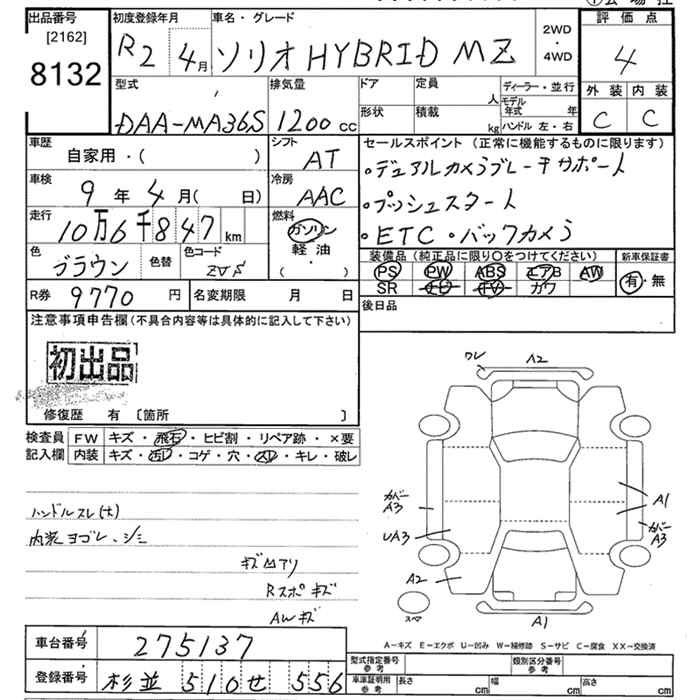 出品番号 初度登録年月 車名・グレード 評価点
[2162]
8132 R2 4月 ソリオHYBRID MZ 2WD・4WD 4
型式 排気量 ドア 定員 人 ディーラー・並行 外装 内装
DAA-MA36S 1200cc 形状 積載 kg モデル年式 年 ハンドル 左・右 C C
車歴 自家用・( ) シフト AT セールスポイント(正常に機能するものに限ります)
・デュアルカメラブレーキサポート
車検 9年4月( 日) 冷房 AAC ・プッシュスタート
走行 10万6千847km 燃料 ガソリン 軽油 ・( ) ・ETC・バックカメラ
色 ブラウン 色替 色コード 装備品(純正品に限り○をつけてください) 新車保証書
PS PW ABS エアB AW 有・無
R券 9770円 名変期限 月 日 SR カワ
注意事項申告欄(不具合内容等は具体的に記入して下さい) 後日品
初出品
修復歴 有〔箇所 〕
検査員 FW キズ・飛石・ヒビ割・リペア跡・×要
記入欄 内装 キズ・汚レ・コゲ・穴・スレ・キレ・破レ
ワレ A2
カバー A3 A1
ハンドルスレ(大) カバー A3
内装ヨゴレ、シミ UA3
キズ凹アリ A2
Rスポキズ スペア
AWキズ A1
A-キズ E-エクボ U-凹み W-補修跡 S-サビ C-腐食 XX-交換済
車台番号 275137 型式指定番号 参考 類別区分番号 参考
登録番号 杉並 510 せ 556 車庫証明用 参考 長さ cm 幅 cm 高さ cm